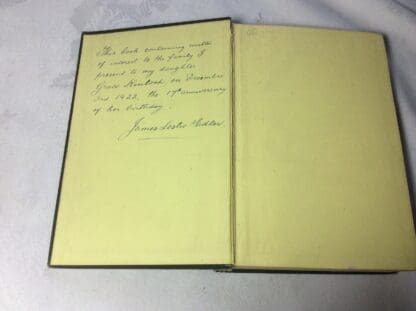 This book containing matter
of interest to the family I
present to my daughter
Grace on December
3rd 1922, the 17th anniversary
of her birthday.
James Leslie